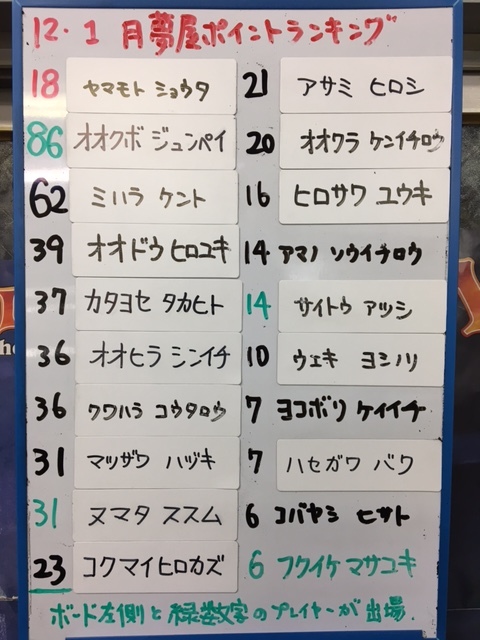 12・1月夢屋ポイントランキング
18 ヤマモト ショウタ
86 オオクボ ジュンペイ
62 ミハラ ケント
39 オオドウ ヒロユキ
37 カタヨセ タカヒト
36 オオヒラ シンイチ
36 クワハラ コウタロウ
31 マツザワ ハヅキ
31 ヌマタ ススム
23 コクマイヒロカズ
21 アサミ ヒロシ
20 オオクラ ケンイチロウ
16 ヒロサワ ユウキ
14 アマノ ソウイチロウ
14 サイトウ アツシ
10 ウェキ ヨシノリ
7 ヨコボリ ケイイチ
7 ハセガワ バク
6 コバヤシ ヒサト
6 フクイケ マサユキ
ボード左側と緑数字のプレイヤーが出場